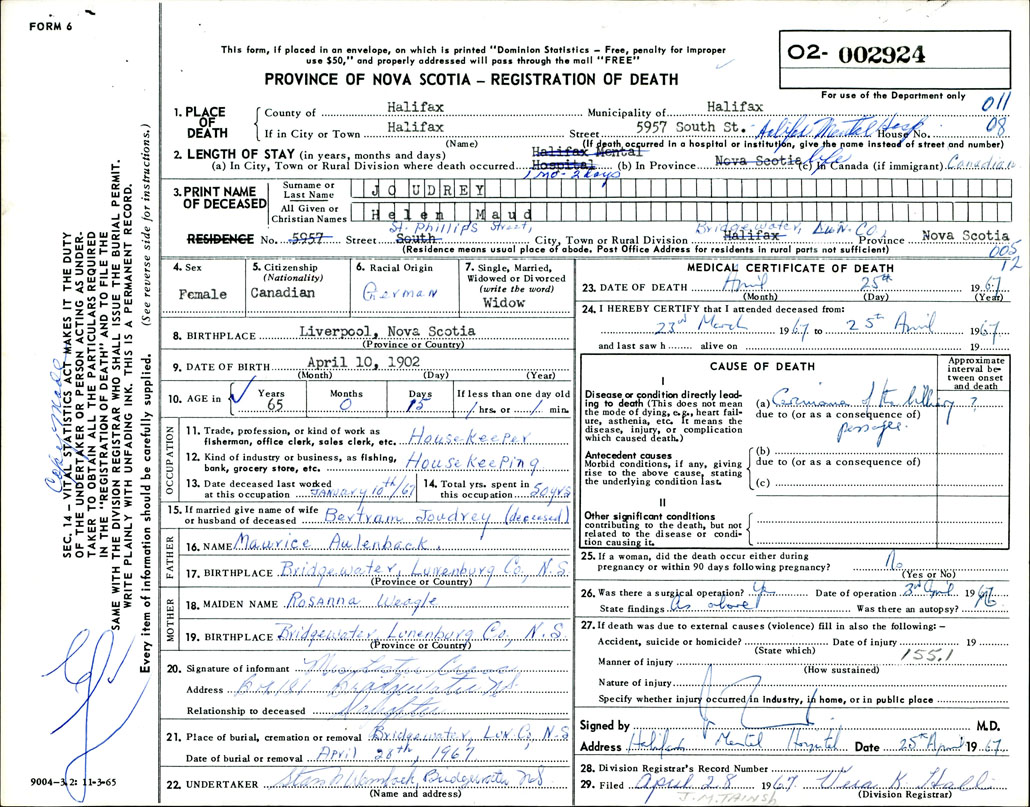 FORM 6
This form, if placed in an envelope, on which is printed "Dominion Statistics – Free, penalty for improper
use $50," and properly addressed will pass through the mail "FREE"
PROVINCE OF NOVA SCOTIA – REGISTRATION OF DEATH
02- 002924
For use of the Department only
011
08
1. PLACE OF DEATH
County of Halifax Municipality of Halifax
If in City or Town Halifax Street 5957 South St. Halifax Mental Hosp House No.
(Name) (If death occurred in a hospital or institution, give the name instead of street and number)
2. LENGTH OF STAY (in years, months and days) Halifax Mental
(a) In City, Town or Rural Division where death occurred Hospital (b) In Province Nova Scotia life (c) In Canada (if immigrant) Canadian
1 mo - 2 days
3. PRINT NAME OF DECEASED
Surname or Last Name JOUDREY
All Given or Christian Names Helen Maud
St. Phillips Street, Bridgewater, Lun. Co.
RESIDENCE No. 5957 Street South City, Town or Rural Division Halifax Province Nova Scotia
(Residence means usual place of abode. Post Office Address for residents in rural parts not sufficient)
005
12
4. Sex
Female
5. Citizenship
(Nationality)
Canadian
6. Racial Origin
German
7. Single, Married,
Widowed or Divorced
(write the word)
Widow
8. BIRTHPLACE Liverpool, Nova Scotia
(Province or Country)
9. DATE OF BIRTH April 10, 1902
(Month) (Day) (Year)
10. AGE in Years Months Days If less than one day old
65 0 15 / hrs. or / min.
OCCUPATION
11. Trade, profession, or kind of work as
fisherman, office clerk, sales clerk, etc. Housekeeper
12. Kind of industry or business, as fishing,
bank, grocery store, etc. Housekeeping
13. Date deceased last worked
at this occupation January 10th/67
14. Total yrs. spent in
this occupation 50 yrs
15. If married give name of wife
or husband of deceased Bertram Joudrey (deceased)
FATHER
16. NAME Maurice Aulenback.
17. BIRTHPLACE Bridgewater, Lunenburg Co., N.S
(Province or Country)
MOTHER
18. MAIDEN NAME Rosanna Weagle
19. BIRTHPLACE Bridgewater Lunenburg Co., N.S.
(Province or Country)
20. Signature of informant
Address Bridgewater NS
Relationship to deceased Daughter
21. Place of burial, cremation or removal Bridgewater, Lun Co, N.S
Date of burial or removal April 28th, 1967
22. UNDERTAKER Bridgewater NS
(Name and address)
MEDICAL CERTIFICATE OF DEATH
23. DATE OF DEATH April 25th 1967
(Month) (Day) (Year)
24. I HEREBY CERTIFY that I attended deceased from:
23rd March 1967 to 25th April 1967
and last saw h alive on 19
CAUSE OF DEATH
Approximate interval between onset and death
I
Disease or condition directly leading
to death (This does not mean
the mode of dying, e.g., heart failure,
asthenia, etc. It means the
disease, injury, or complication
which caused death.)
(a) Carcinoma of the biliary ?
due to (or as a consequence of)
passages.
Antecedent causes
Morbid conditions, if any, giving
rise to the above cause, stating
the underlying condition last.
(b)
due to (or as a consequence of)
(c)
II
Other significant conditions
contributing to the death, but not
related to the disease or condition
causing it.
25. If a woman, did the death occur either during
pregnancy or within 90 days following pregnancy? No
(Yes or No)
26. Was there a surgical operation? Yes Date of operation 3rd April 1967
State findings As above Was there an autopsy? No
27. If death was due to external causes (violence) fill in also the following: –
Accident, suicide or homicide? Date of injury 19
(State which) 155.1
Manner of injury
(How sustained)
Nature of injury
Specify whether injury occurred in industry, in home, or in public place
Signed by M.D.
Address Halifax Mental Hospital Date 25th April 1967
28. Division Registrar's Record Number
29. Filed April 28 1967
J.M. TAINSH (Division Registrar)
SEC. 14 – VITAL STATISTICS ACT MAKES IT THE DUTY
OF THE UNDERTAKER OR PERSON ACTING AS UNDERTAKER
TO OBTAIN ALL THE PARTICULARS REQUIRED
IN THE "REGISTRATION OF DEATH" AND TO FILE THE
SAME WITH THE DIVISION REGISTRAR WHO SHALL ISSUE THE BURIAL PERMIT.
WRITE PLAINLY WITH UNFADING INK. THIS IS A PERMANENT RECORD.
Every item of information should be carefully supplied. (See reverse side for instructions.)
9004-3.2: 11-3-65